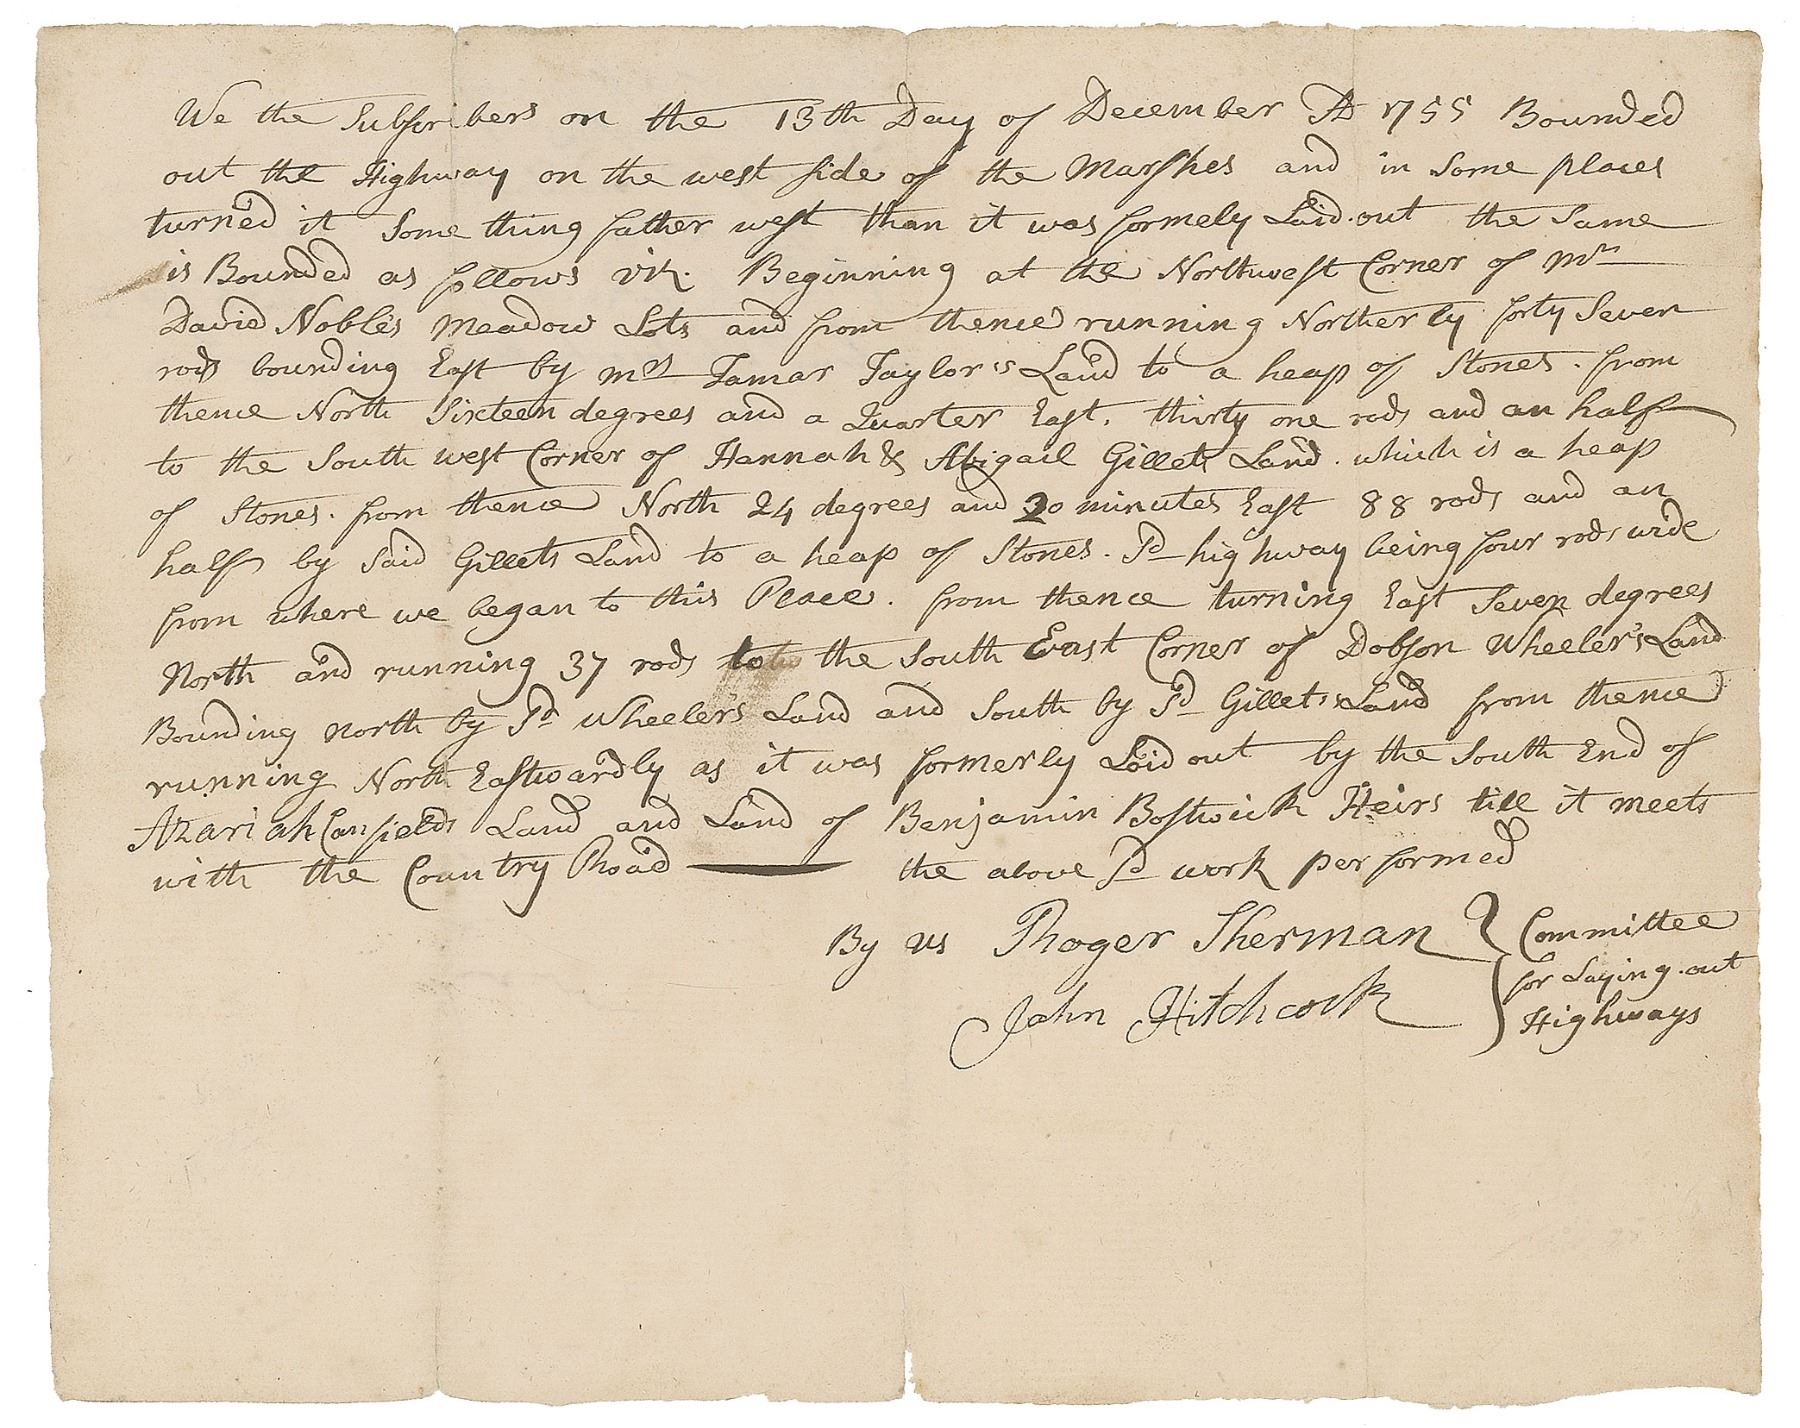 We the Subscribers on the 13th Day of December AD 1755 Bounded
out the Highway on the west side of the Marshes and in Some places
turned it Some thing father west than it was formely Laid out the Same
is Bounded as follows viz. Beginning at the Northwest Corner of Mr
David Nobles Meadow Lots and from thence running Northerly forty Seven
rods bounding East by Mrs Tamar Taylor's Land to a heap of Stones. from
thence North Sixteen degrees and a Quarter East. thirty one rods and an half
to the South west Corner of Hannah & Abigail Gillets Land. which is a heap
of Stones. from thence North 24 degrees and 20 minutes East 88 rods and an
half by Said Gillets Land to a heap of Stones. Sd highway being four rods wide
from where we began to this Place. from thence turning East Seven degrees
North and running 37 rods to the South East Corner of Dobson Wheeler's Land
Bounding north by Sd Wheeler's Land and South by Sd Gillets Land from thence
running North Eastwardly as it was formerly Laid out by the South End of
Azariah Canfields Land and Land of Benjamin Bostwick Heirs till it meets
with the Country Road — the above Sd work performed
By us Roger Sherman } Committee
John Hitchcock for Laying out
Highways